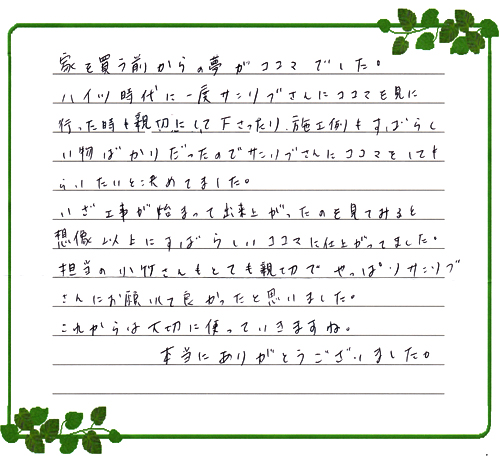 家を買う前からの夢がココマでした。
ハイツ時代に一度サンリブさんにココマを見に
行った時も親切にして下さったり、施工例もすばらし
い物ばかりだったのでサンリブさんにココマをしても
らいたいと決めてました。
いざ工事が始まって出来上がったのを見てみると
想像以上にすばらしいココマに仕上がってました。
担当の小竹さんもとても親切でやっぱりサンリブ
さんにお願いして良かったと思いました。
これからは大切に使っていきますね。
本当にありがとうございました。